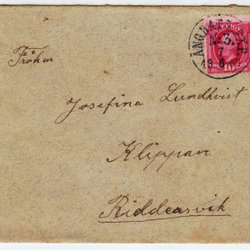 Fröken
Josefina Lundkvist
Klippan
Riddersvik
ÅNGBÅTS